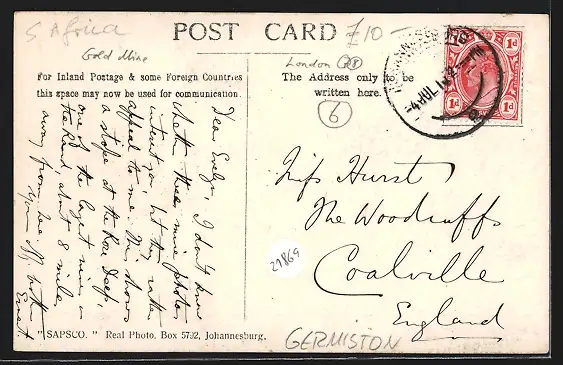 S Africa
POST CARD
£10 -
Gold Mine
London
For Inland Postage & some Foreign Countries
this space may now be used for communication.
The Address only to be
written here.
6
4 JUL 1
1d 1d
1d 1d
Dear Evelyn, I don't know
whether these mine photos
interest you, but they rather
appeal to me. This shows
a stope at the Rose Deep,
one of the largest mines on
the Rand, about 8 miles
away from here.
Your aff. brother
Ernest
Miss Hurst
The Woodruffs
Coalville
England
27869
"SAPSCO." Real Photo, Box 5792, Johannesburg.
GERMISTON